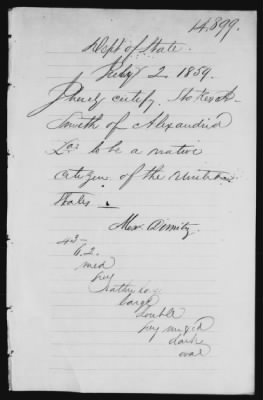 14.899.
Dept of State.
July 2 1859.
I hereby certify
Smith of Alexandria
La. to be a native
citizen of the United
States.
43
6.2.
med
large
double
dark
oval